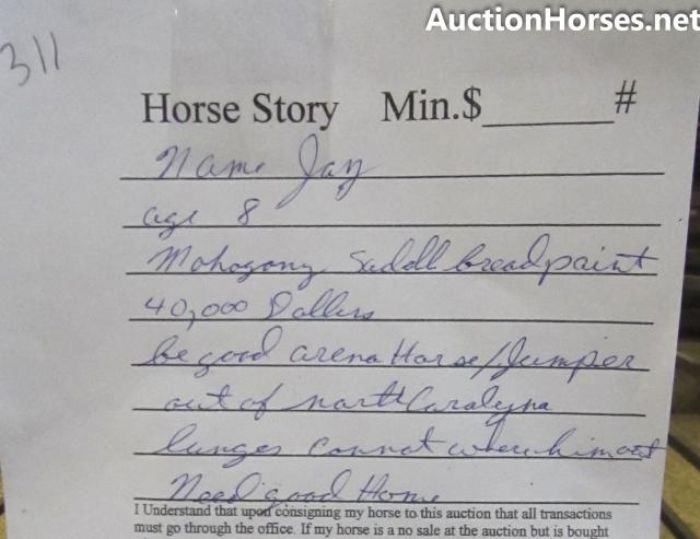 AuctionHorses.net
311
Horse Story Min.$______#
Name Jay
age 8
Mohogony Sadell bread paint
40,000 Dollers
be good arena Horse/Jumper
out of north Caralyna
lunges connot where him out
Need good Home
I Understand that upon consigning my horse to this auction that all transactions
must go through the office. If my horse is a no sale at the auction but is bought